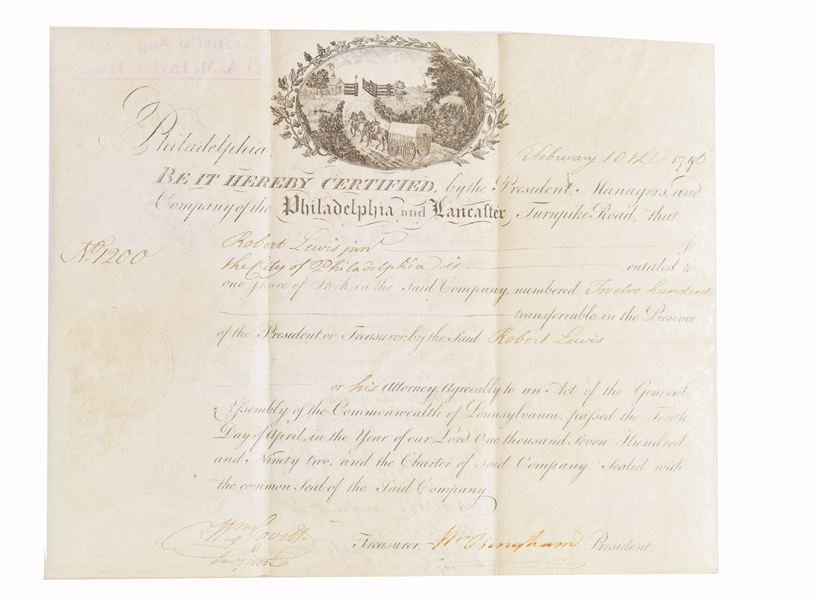 Philadelphia, February 10th 1795
BE IT HEREBY CERTIFIED, by the President, Managers, and
Company of the Philadelphia and Lancaster Turnpike Road, that
Robert Lewis junr of
No. 1200
the City of Philadelphia is entitled to
one Share of Stock in the Said Company, numbered Twelve hundred
transferrable in the Presence
of the President or Treasurer, by the Said Robert Lewis
or his Attorney, Agreeably to an Act of the General
Assembly of the Commonwealth of Pennsylvania, passed the
Day of April, in the Year of our Lord One thousand Seven Hundred
and Ninety two, and the Charter of Said Company. Sealed with
the common Seal of the Said Company
Wm Govett
Treasurer. Wm Bingham President